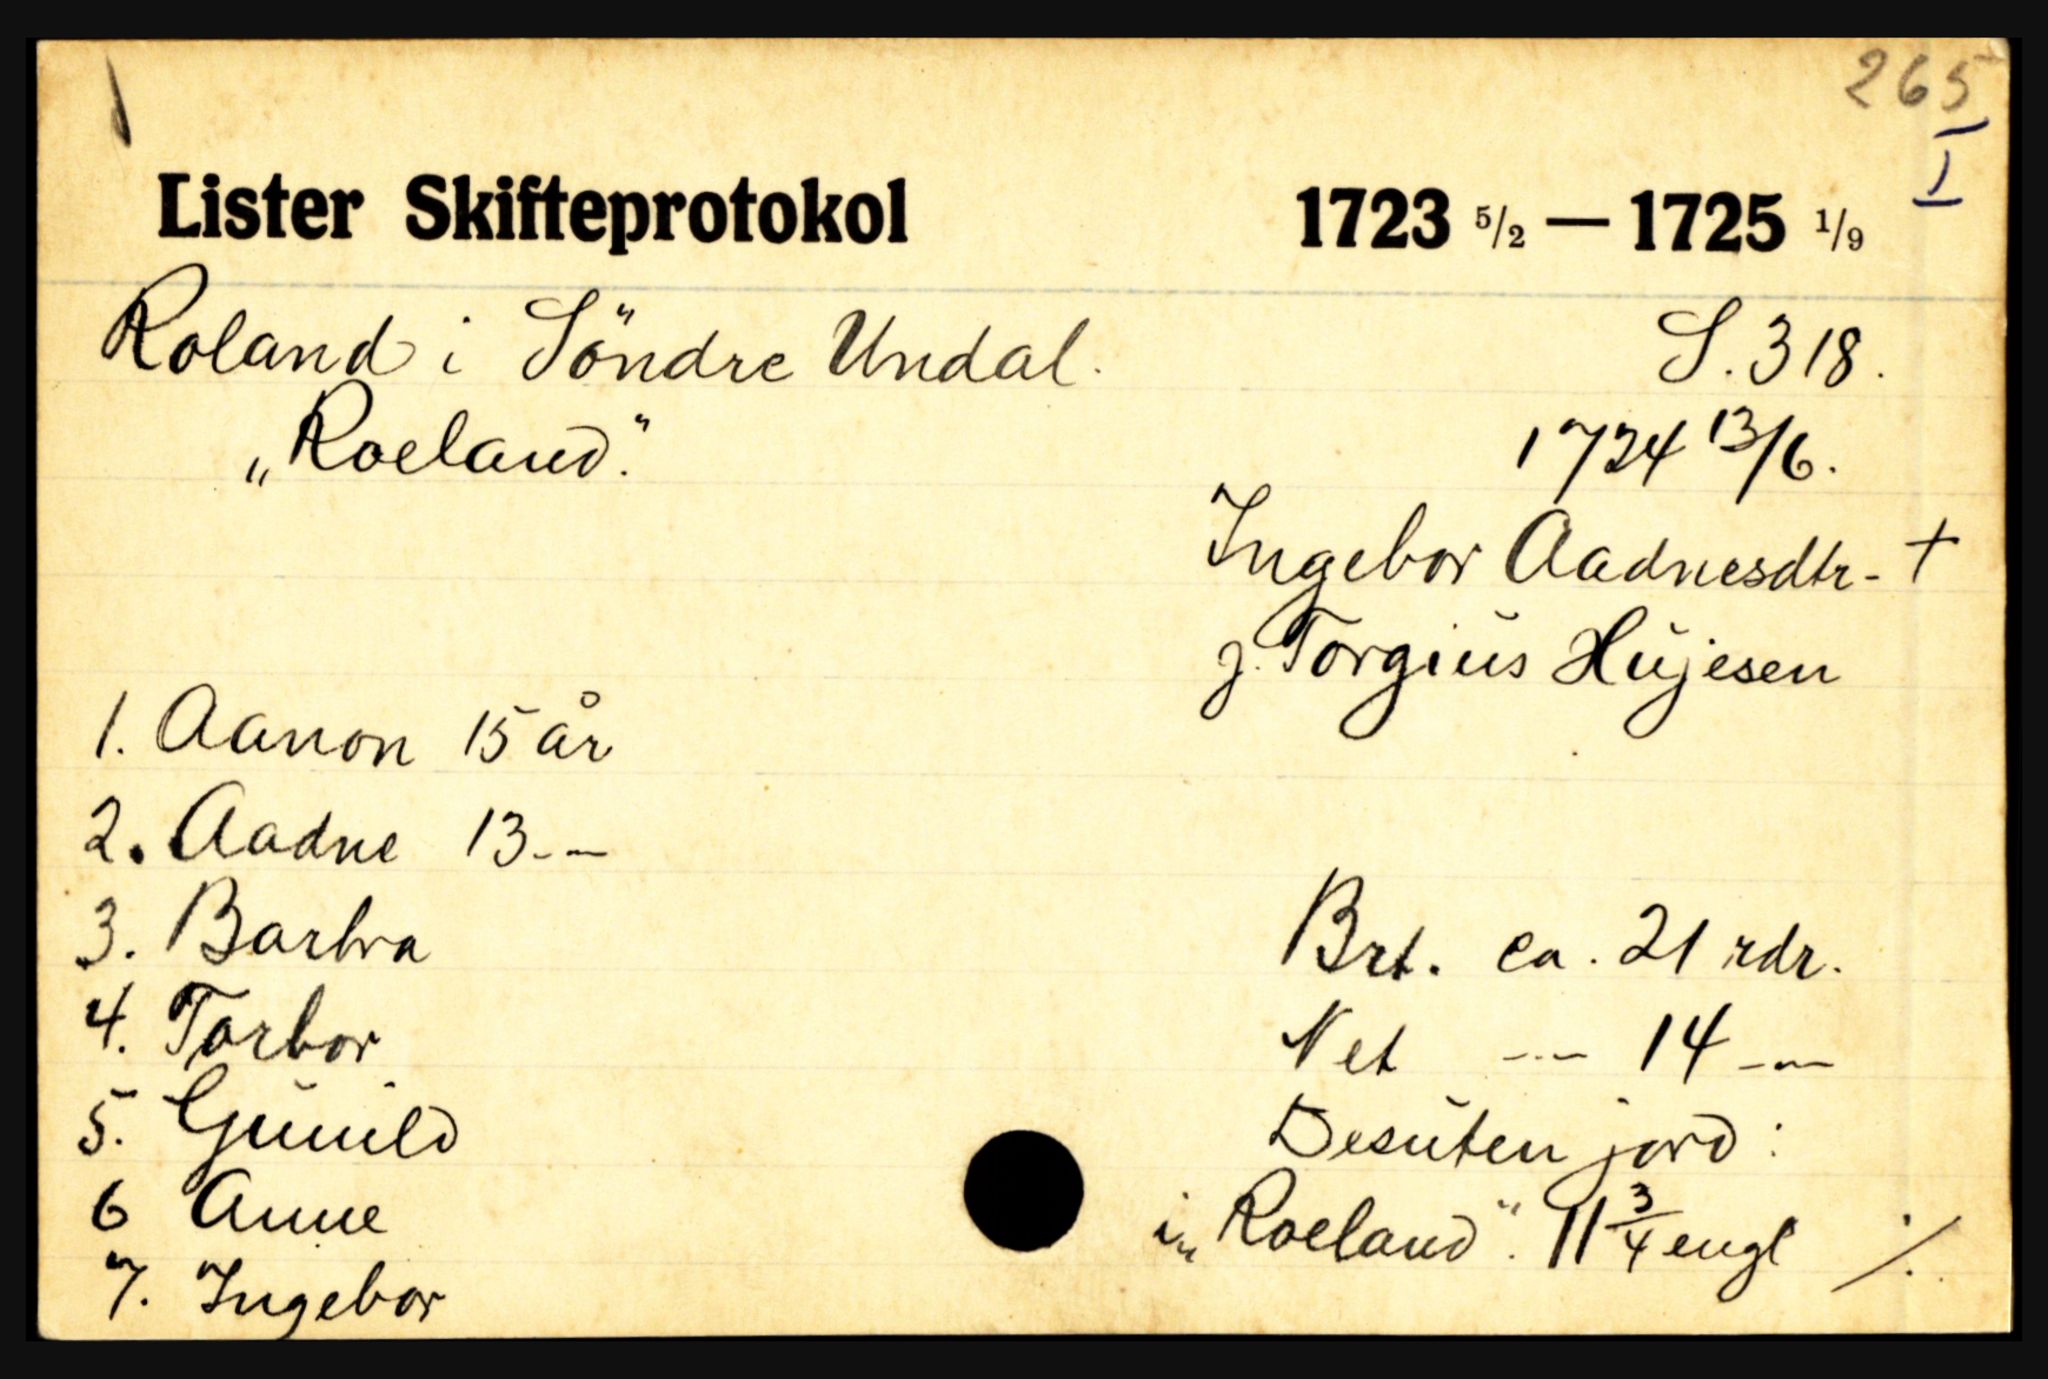 265
I
Lister Skifteprotokol 1723 5/2 — 1725 1/9
Roland i Söndre Undal. S. 318.
„Roeland." 1724 13/6.
Ingebor Aadnesdtr - +
g. Torgius Hujesen
1. Aanon 15 år
2. Aadne 13 - -
3. Barbra
4. Torbor
5. Gunild
6 Anne
7. Ingebor
Brt. ca. 21 rdr.
Net -"- 14 -"-
Desuten jord:
i „Roeland". 11 3/4 engl ./.